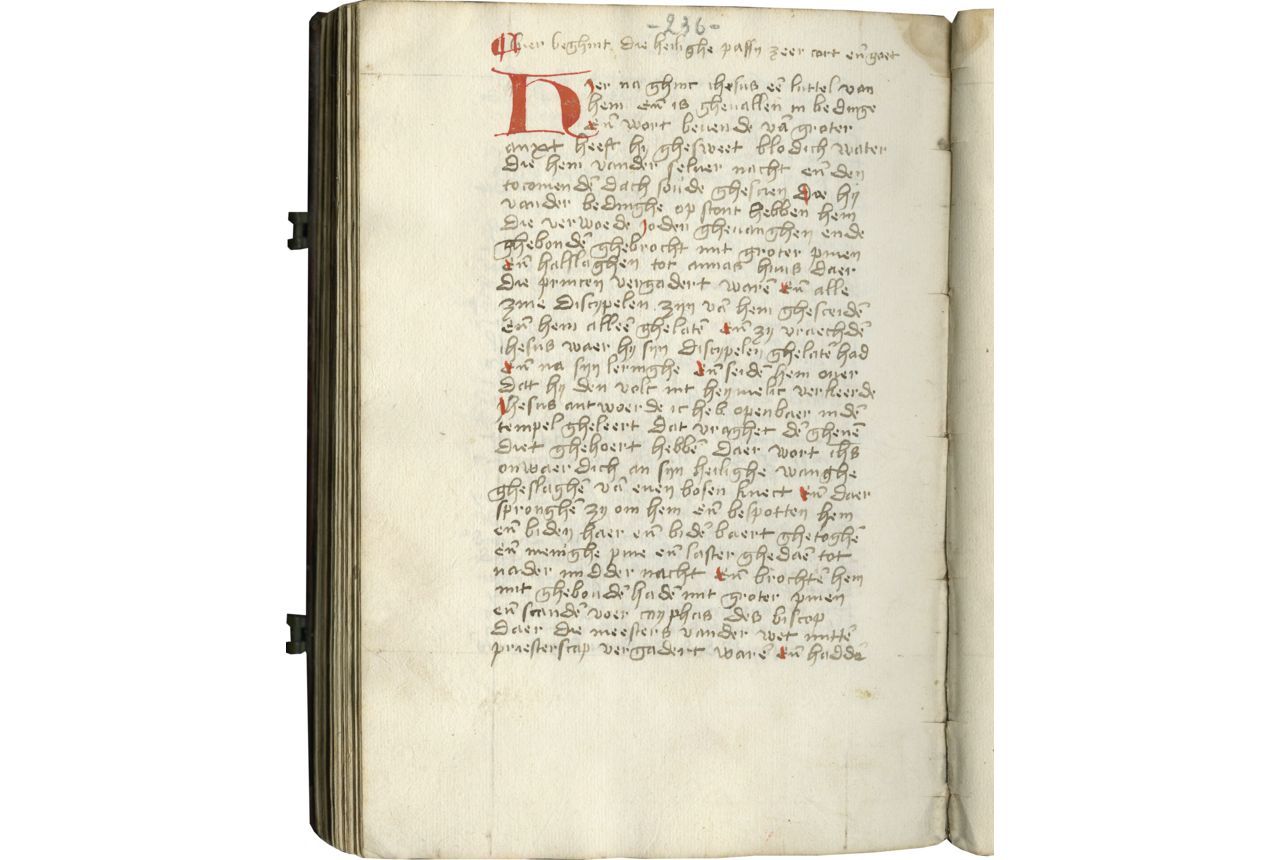 -236-
Hier beghint die heilighe passy zeer cort en̄ goet
Hier na ghinc ihesus eē luttel van
hem en̄ is gheuallen in bedinge
en̄ wort beuende vā groter
anxt heeft hy ghesweet blodich water
die hem vander seluer nacht en̄ den
tocomendē dach soude ghescien Doe hy
vander bedinghe op stont hebben hem
die verwoede Joden gheuanghen ende
ghebondē ghebrocht mit groter pinen
en̄ halslaghen tot annas huus daer
die princen vergadert warē En̄ alle
zine discipelen zijn vā hem ghesceidē
en̄ hem alleē ghelatē En̄ zy vraechdē
ihesus waer hy sijn discipelen ghelatē had
En̄ na sijn leringhe En̄ seidē hem ouer
dat hy den volc mit heymelic verkeerde
Jhesus antwoerde ic heb openbaer indē
tempel gheleert dat vraghet dē ghenē
diet ghehoert hebbē daer wort ihs
onwaerdich an sijn heilighe wanghe
gheslaghē vā enen bosen knect En̄ daer
spronghē zy om hem en̄ bespotten hem
en̄ biden haer en̄ bidē baert ghetoghē
en̄ menighe pine en̄ laster ghedaē tot
nader middernacht En̄ brochtē hem
mit ghebondē hadē mit groter pinen
en̄ scandē voer cayphas des biscop
daer die meesters vander wet mittē
priesterscap vergadert warē En̄ haddē